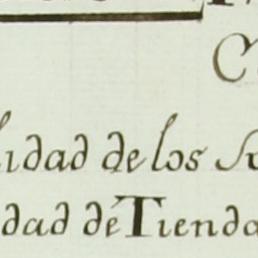 C
lidad de los S
dad de Tienda